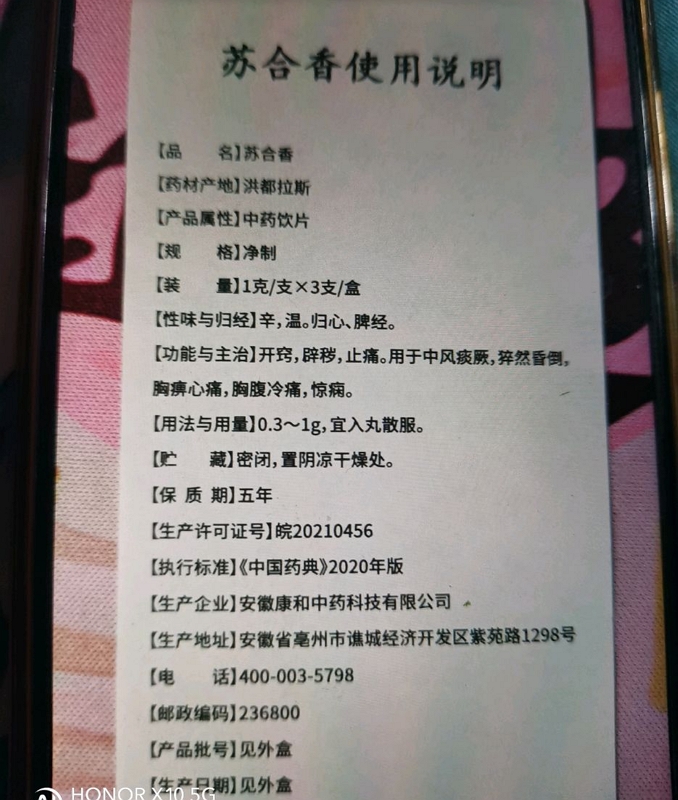 苏合香使用说明
【品 名】苏合香
【药材产地】洪都拉斯
【产品属性】中药饮片
【规 格】净制
【装 量】1克/支×3支/盒
【性味与归经】辛,温。归心、脾经。
【功能与主治】开窍,辟秽,止痛。用于中风痰厥,猝然昏倒,
胸痹心痛,胸腹冷痛,惊痫。
【用法与用量】0.3～1g,宜入丸散服。
【贮 藏】密闭,置阴凉干燥处。
【保 质 期】五年
【生产许可证号】皖20210456
【执行标准】《中国药典》2020年版
【生产企业】安徽康和中药科技有限公司
【生产地址】安徽省亳州市谯城经济开发区紫苑路1298号
【电 话】400-003-5798
【邮政编码】236800
【产品批号】见外盒
【生产日期】见外盒
HONOR X10 5G